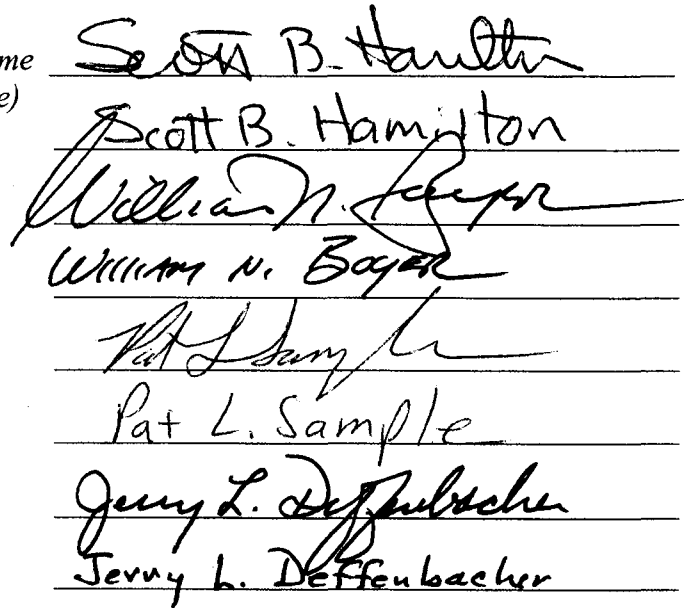 me Scott B. Hamilton
e)
Scott B. Hamilton
William N. Boyer
William N. Boyer
Pat L Sample
Pat L. Sample
Jerry L. Deffenbacher
Jerry L. Deffenbacher